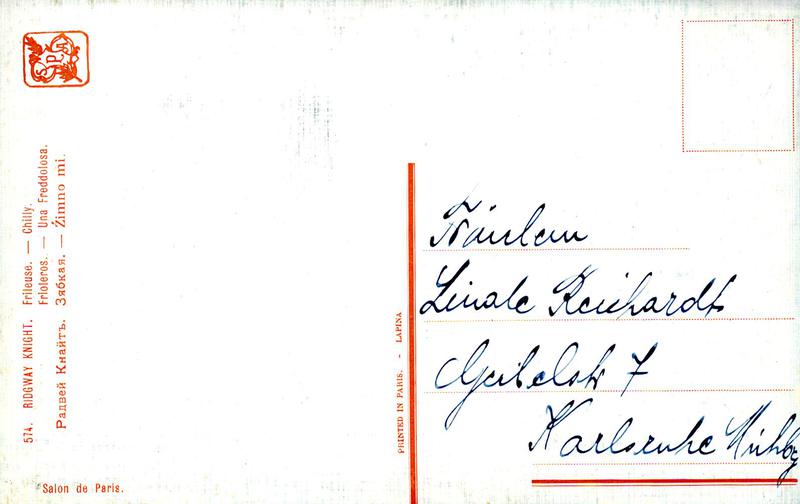 SPA
574. RIDGWAY KNIGHT. Frileuse. — Chilly.
Frioleros. — Una Freddolosa.
Радвей Кнайтъ. Зябкая. — Źimno mi.
Salon de Paris.
PRINTED IN PARIS. - LAPINA
Fräulein
Reichardt
Geibelstr 7
Karlsruhe Mühlbg